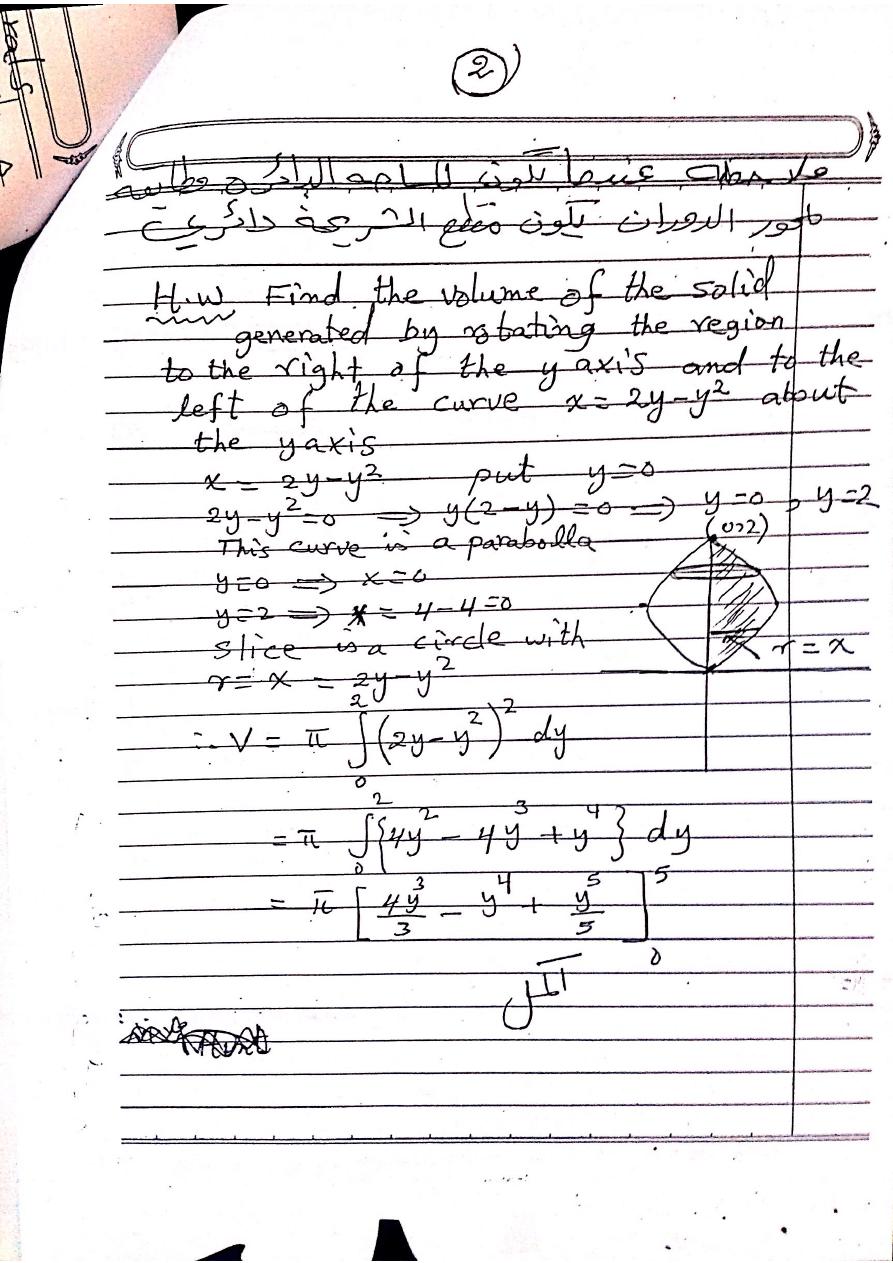 2
ملاحظة عندما تكون المساحة الدائرة
محور الدوران تكون مقطع الشريحة دائري
H.W Find the volume of the solid
generated by rotating the region
to the right of the y axis and to the
left of the curve x = 2y-y² about
the y axis
x = 2y-y² put y=0
2y-y²=0 ⟹ y(2-y) = 0 ⟹ y=0, y=2
This curve is a parabolla
(0,2)
y=0 ⟹ x=0
y=2 ⟹ x = 4-4=0
slice is a circle with
r = x
r = x = 2y-y²
∴ V = π ∫₀² (2y-y²)² dy
= π ∫₀² {4y² - 4y³ + y⁴} dy
= π [4y³/3 - y⁴ + y⁵/5]₀⁵